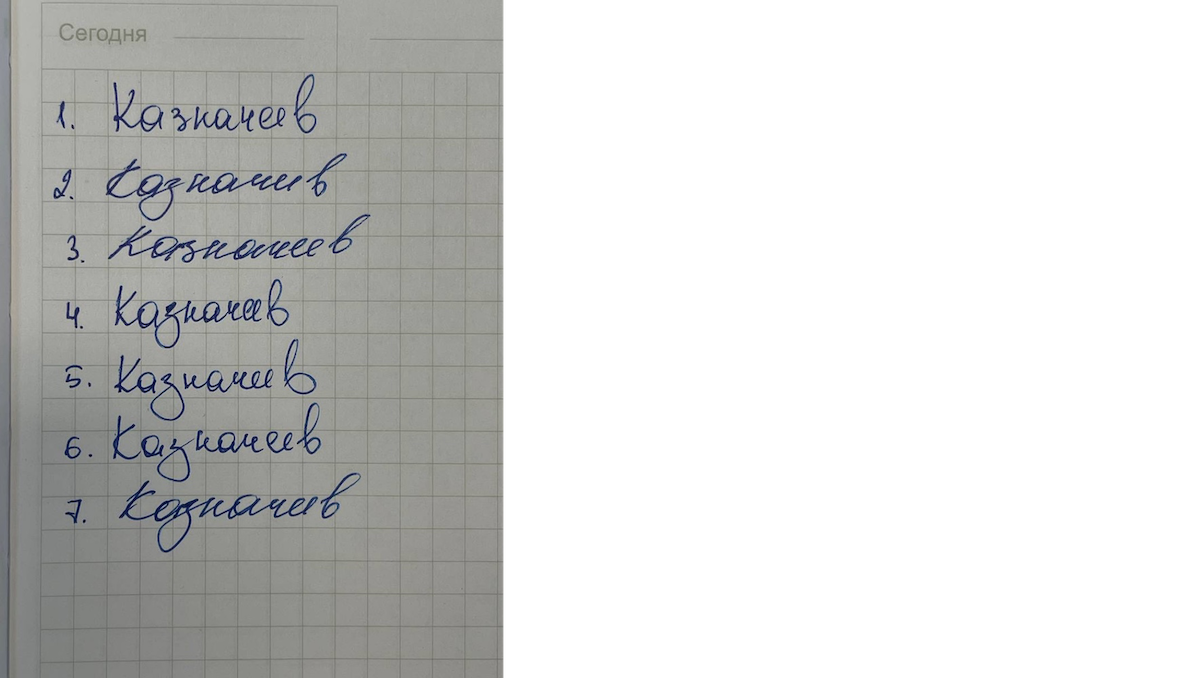 Сегодня
1. Казначеев
2. Казначеев
3. Казначеев
4. Казначеев
5. Казначеев
6. Казначеев
7. Казначеев